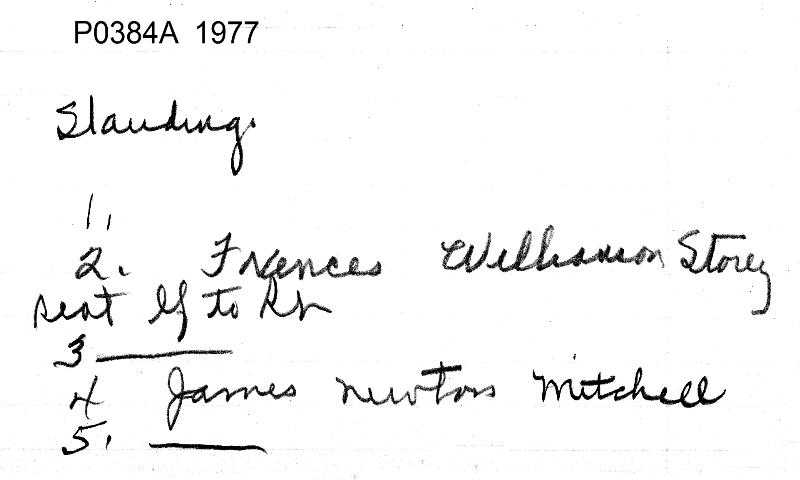 P0384A 1977
Standing.
1,
2. Frances Williamson Storey
seat lf to Rh
3
4 James Newton Mitchell
5.